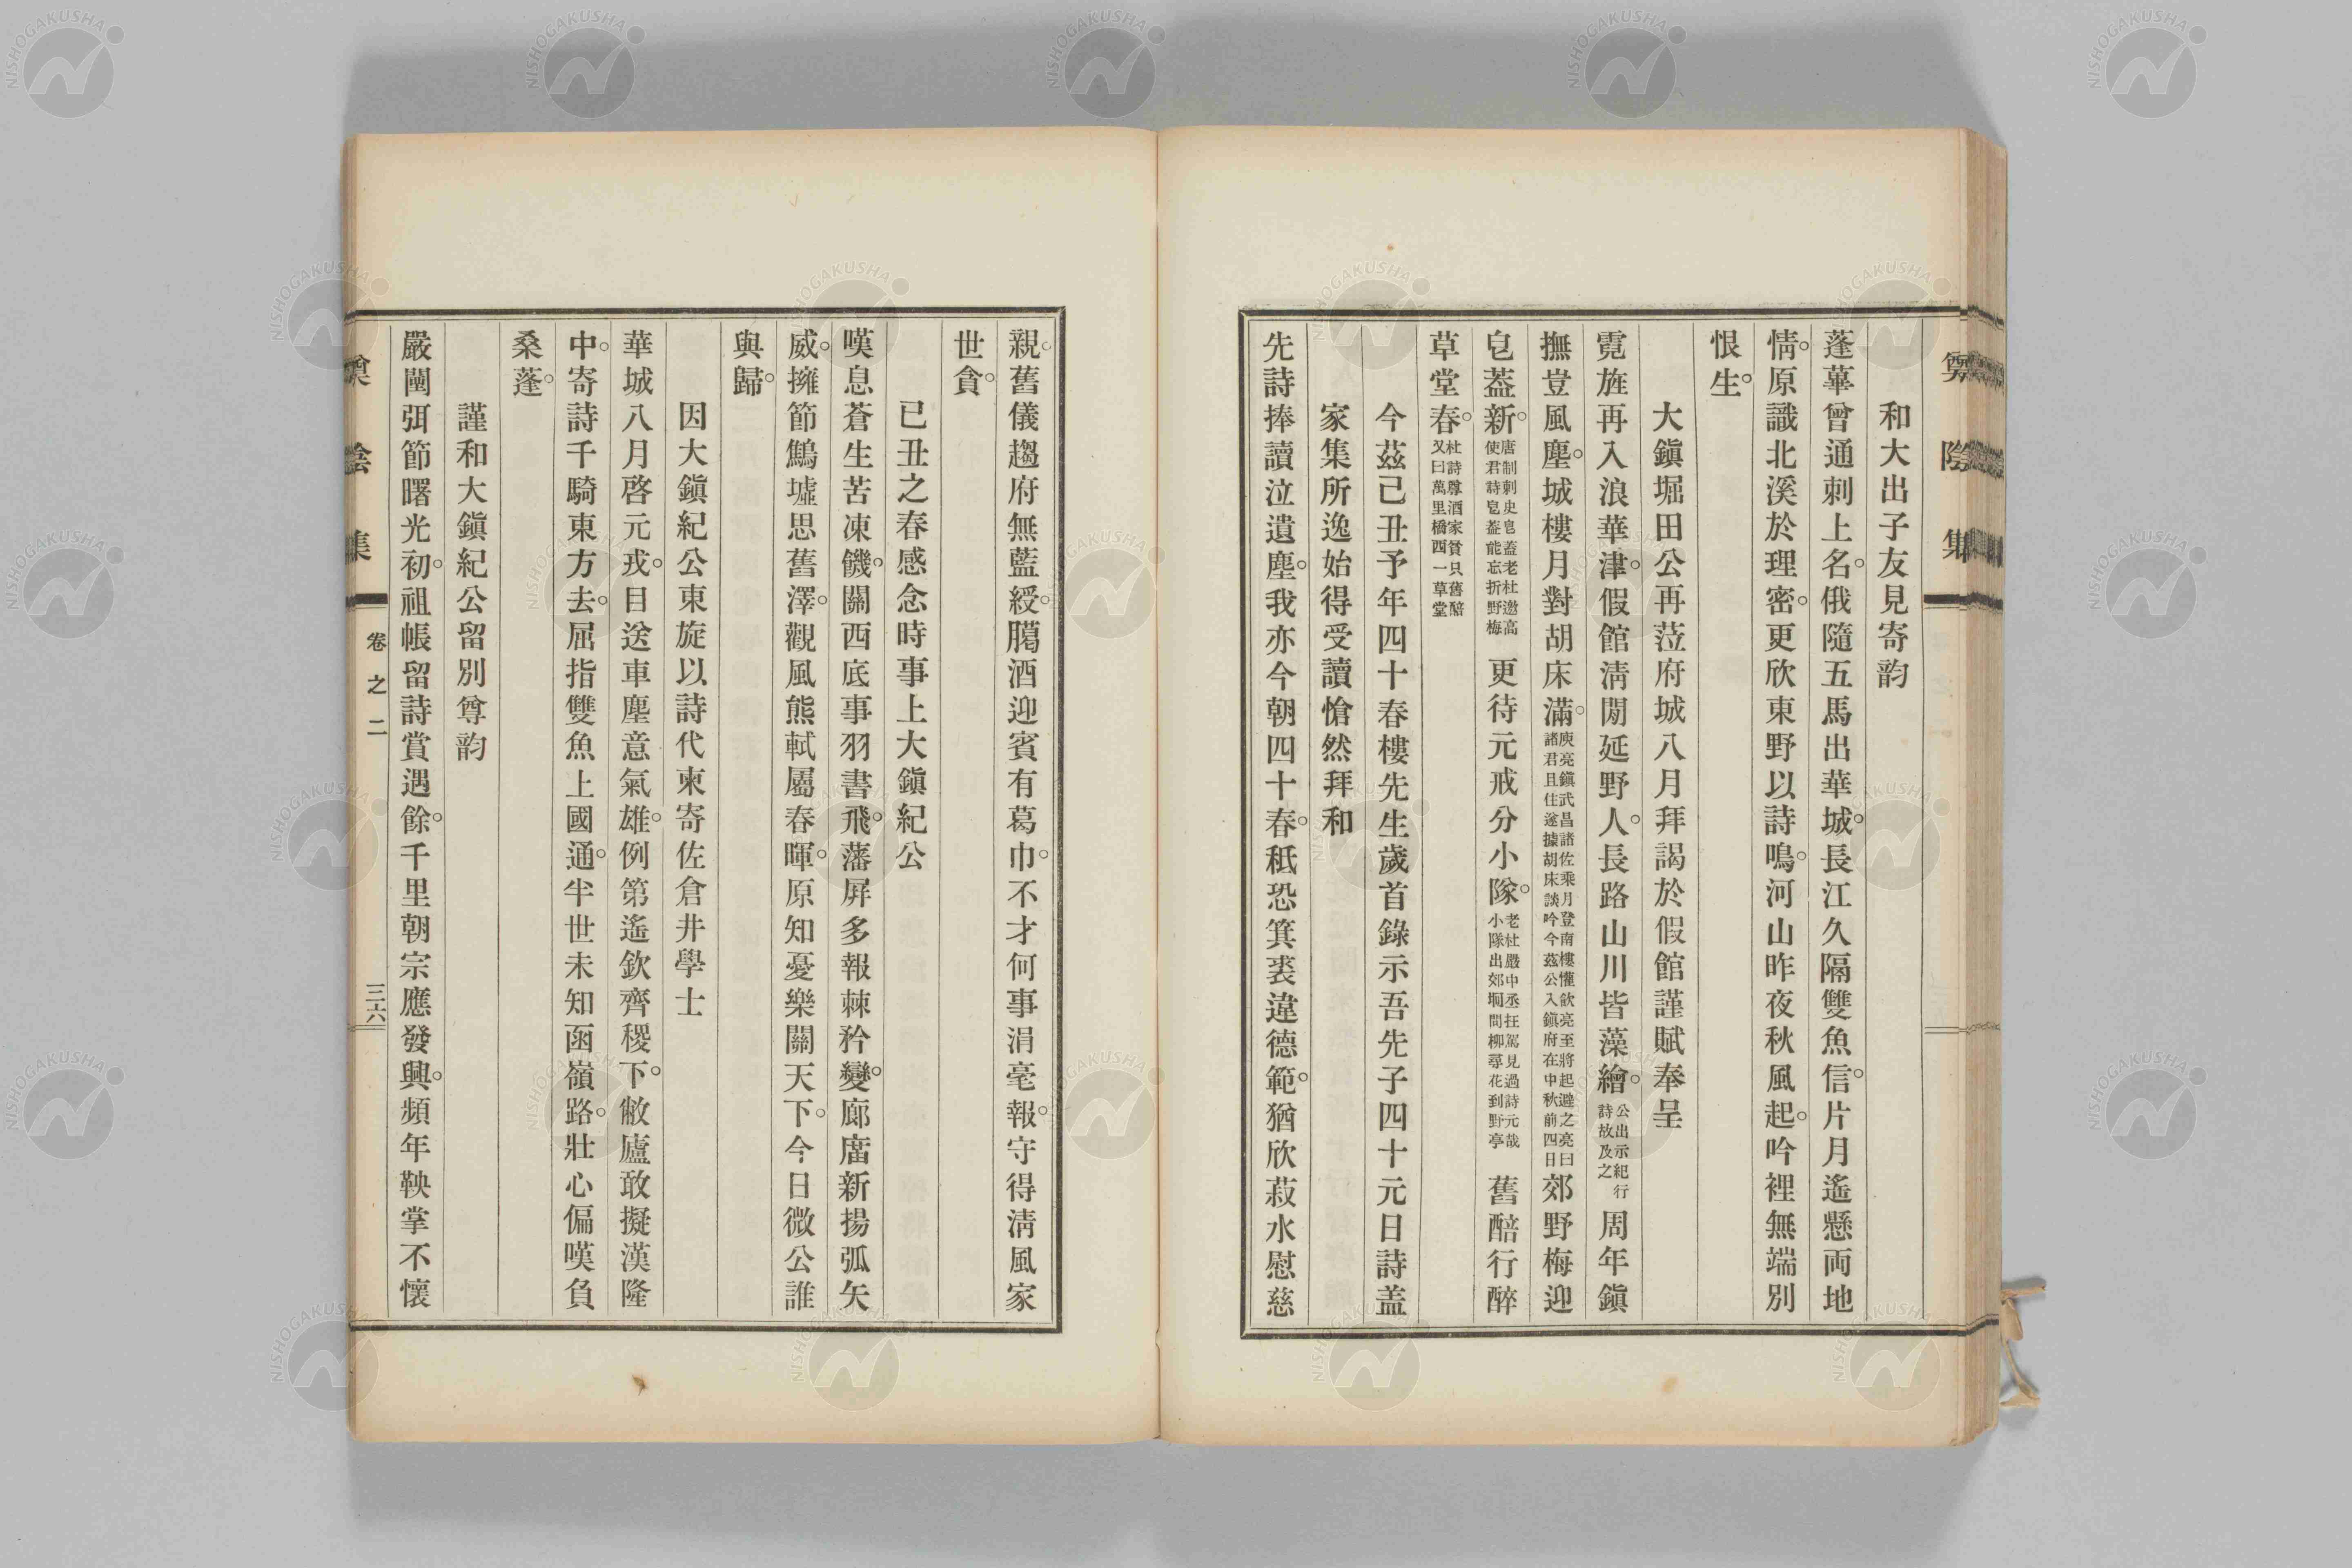 和大出子友見寄韵
蓬蓽曾通刺上名。俄隨五馬出華城。長江久隔雙魚信。片月遙懸両地
情。原識北溪於理密。更欣東野以詩鳴。河山昨夜秋風起。吟裡無端別
恨生。
大鎭堀田公再蒞府城八月拜謁於假館謹賦奉呈
霓旌再入浪華津。假館淸閒延野人。長路山川皆藻繪。公出示紀行詩故及之周年鎭
撫豈風塵。城樓月對胡床滿。庾亮鎭武昌諸佐乘月登南樓懽飮亮至將起避之亮曰諸君且住遂據胡床談吟今茲公入鎭府在中秋前四日郊野梅迎
皀蓋新。唐制刺史皀蓋老杜邀高使君詩皀蓋能忘折野梅更待元戒分小隊。老杜嚴中丞抂駕見過詩元哉小隊出郊坰問柳尋花到野亭舊醅行醉
草堂春。杜詩尊酒家貧只舊醅又曰萬里橋西一草堂
今茲己丑予年四十春樓先生歲首錄示吾先子四十元日詩盖
家集所逸始得受讀愴然拜和
先詩捧讀泣遺塵。我亦今朝四十春。秖恐箕裘違德範。猶欣菽水慰慈
親。舊儀趨府無藍綬。臈酒迎賓有葛巾。不才何事涓毫報。守得淸風家
世貪。
已丑之春感念時事上大鎭紀公
嘆息蒼生苦凍饑。關西底事羽書飛。藩屏多報棘矜變。廊庿新揚弧矢
威。擁節鷦墟思舊澤。觀風熊軾屬春暉。原知憂樂關天下。今日微公誰
與歸。
因大鎭紀公東旋以詩代柬寄佐倉井學士
華城八月啓元戎。目送車塵意氣雄。例第遙欽齊稷下。敝廬敢擬漢隆
中。寄詩千騎東方去。屈指雙魚上國通。半世未知函嶺路。壯心偏嘆負
桑蓬。
謹和大鎭紀公留別尊韵
嚴闉弭節曙光初。祖帳留詩賞遇餘。千里朝宗應發興。頻年鞅掌不懷
陰集
卷之二
三六